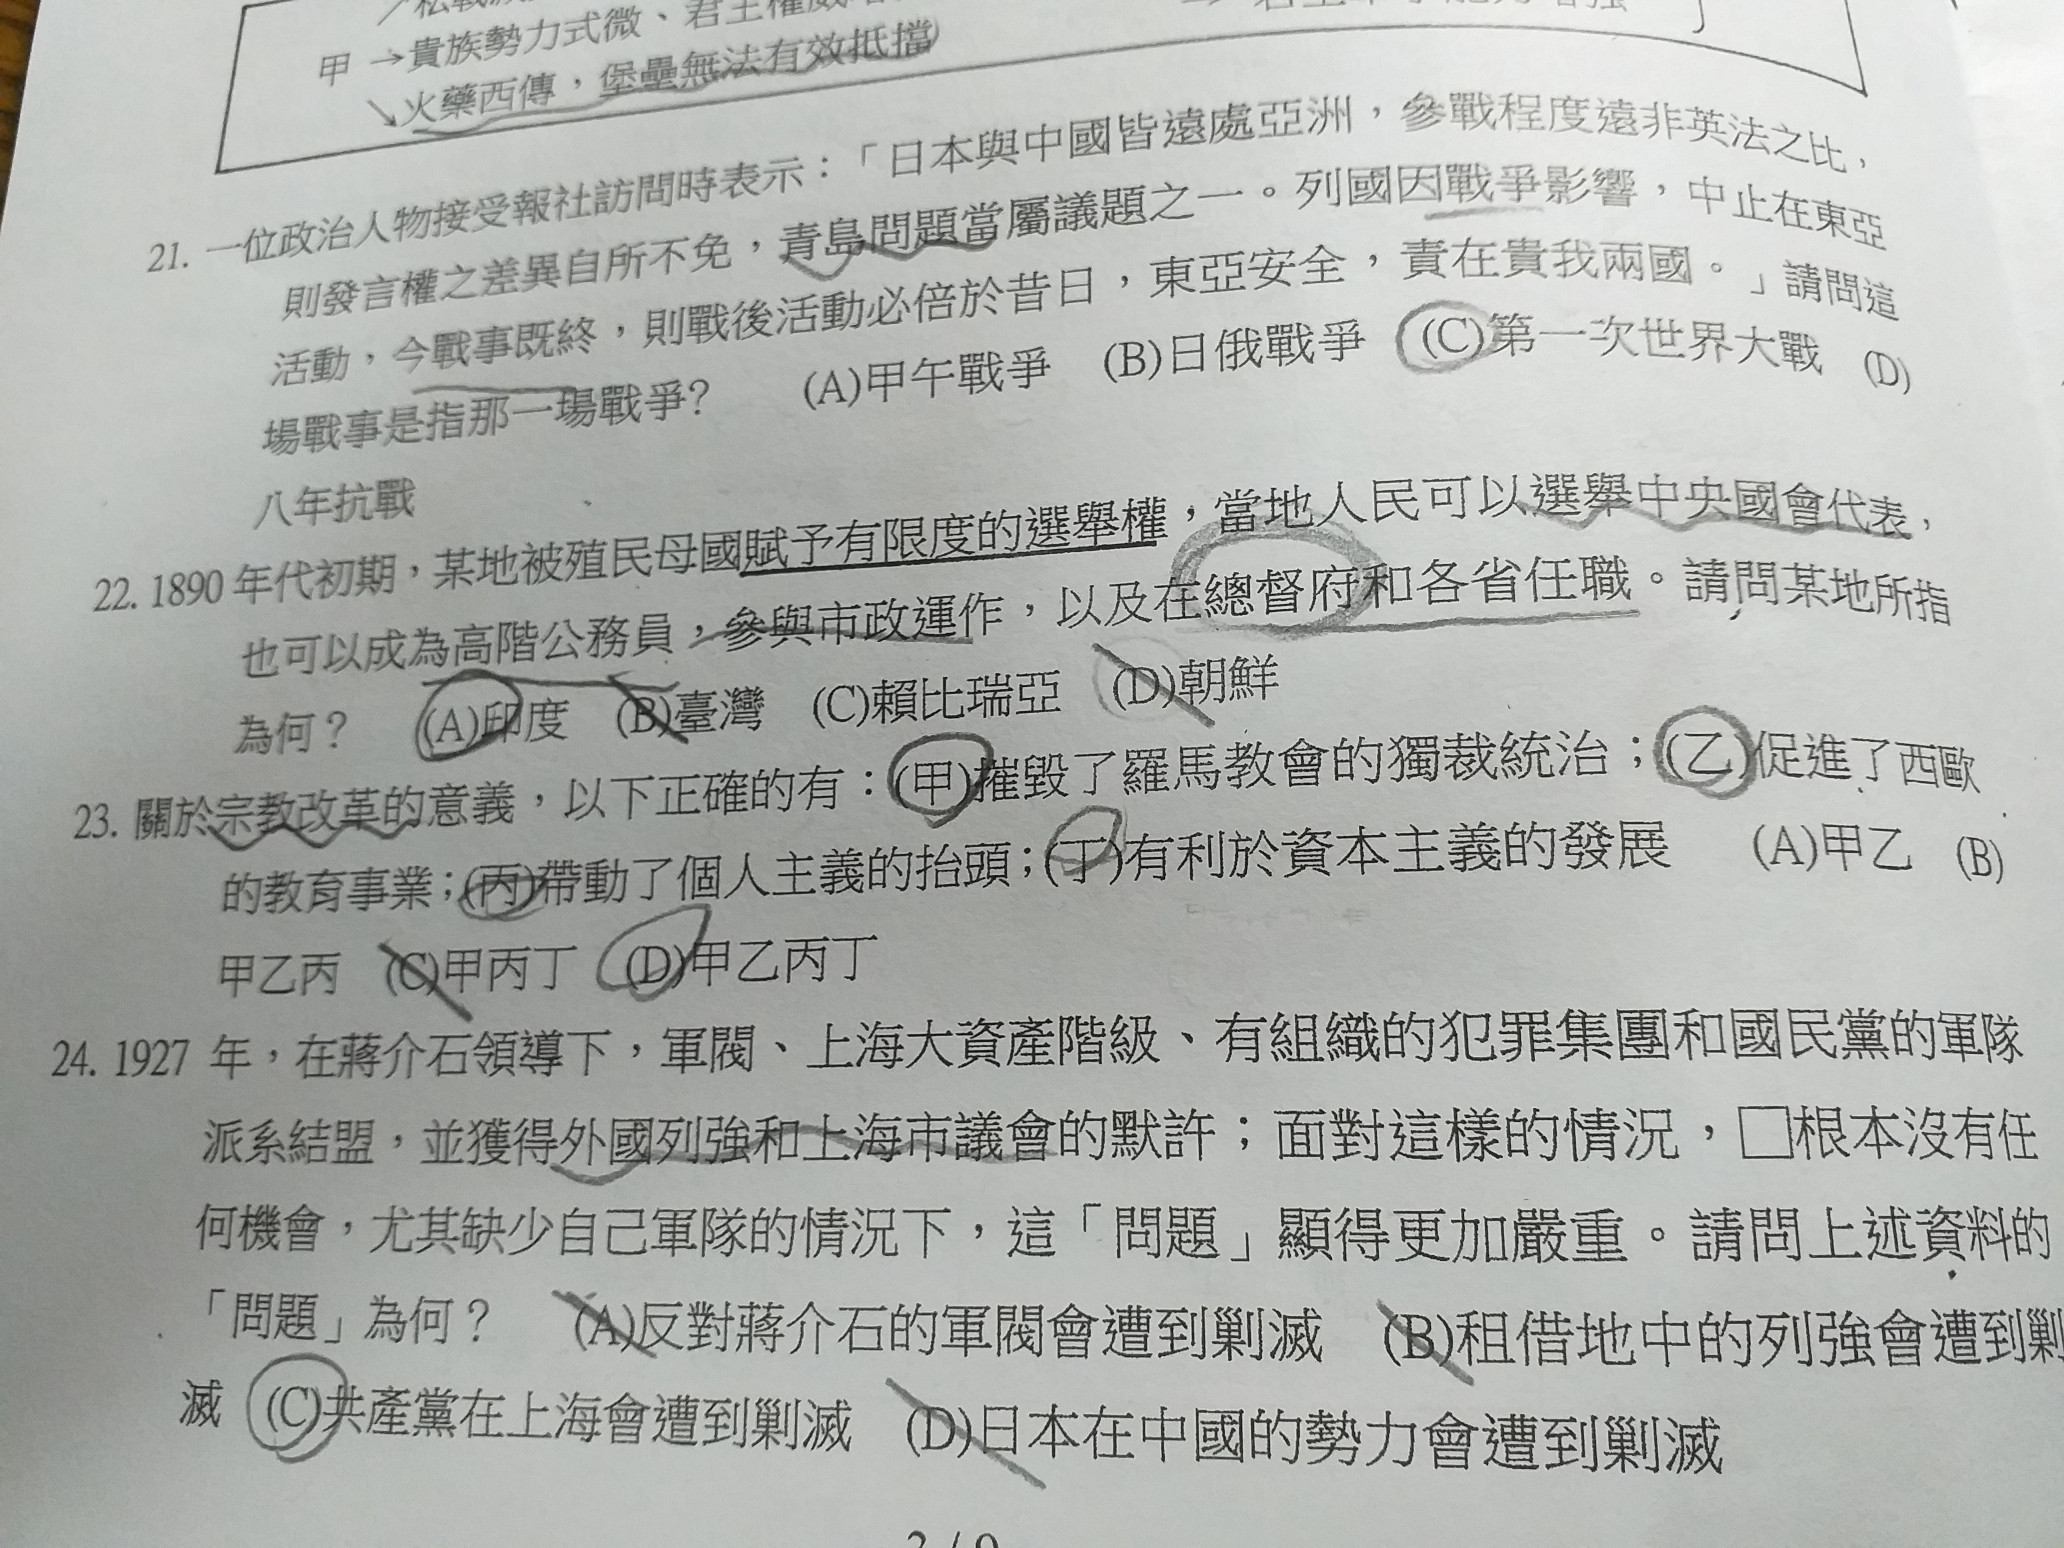 甲→貴族勢力式微、君主權威
↘火藥西傳，堡壘無法有效抵擋
21. 一位政治人物接受報社訪問時表示：「日本與中國皆遠處亞洲，參戰程度遠非英法之比，
則發言權之差異自所不免，青島問題當屬議題之一。列國因戰爭影響，中止在東亞
活動，今戰事既終，則戰後活動必倍於昔日，東亞安全，責在貴我兩國。」請問這
場戰事是指那一場戰爭？ (A)甲午戰爭 (B)日俄戰爭 (C)第一次世界大戰 (D)
八年抗戰
22. 1890 年代初期，某地被殖民母國賦予有限度的選舉權，當地人民可以選舉中央國會代表，
也可以成為高階公務員，參與市政運作，以及在總督府和各省任職。請問某地所指
為何？ (A)印度 (B)臺灣 (C)賴比瑞亞 (D)朝鮮
23. 關於宗教改革的意義，以下正確的有：(甲)摧毀了羅馬教會的獨裁統治；(乙)促進了西歐
的教育事業；(丙)帶動了個人主義的抬頭；(丁)有利於資本主義的發展 (A)甲乙 (B)
甲乙丙 (C)甲丙丁 (D)甲乙丙丁
24. 1927 年，在蔣介石領導下，軍閥、上海大資產階級、有組織的犯罪集團和國民黨的軍隊
派系結盟，並獲得外國列強和上海市議會的默許；面對這樣的情況，□根本沒有任
何機會，尤其缺少自己軍隊的情況下，這「問題」顯得更加嚴重。請問上述資料的
「問題」為何？ (A)反對蔣介石的軍閥會遭到剿滅 (B)租借地中的列強會遭到剿
滅 (C)共產黨在上海會遭到剿滅 (D)日本在中國的勢力會遭到剿滅